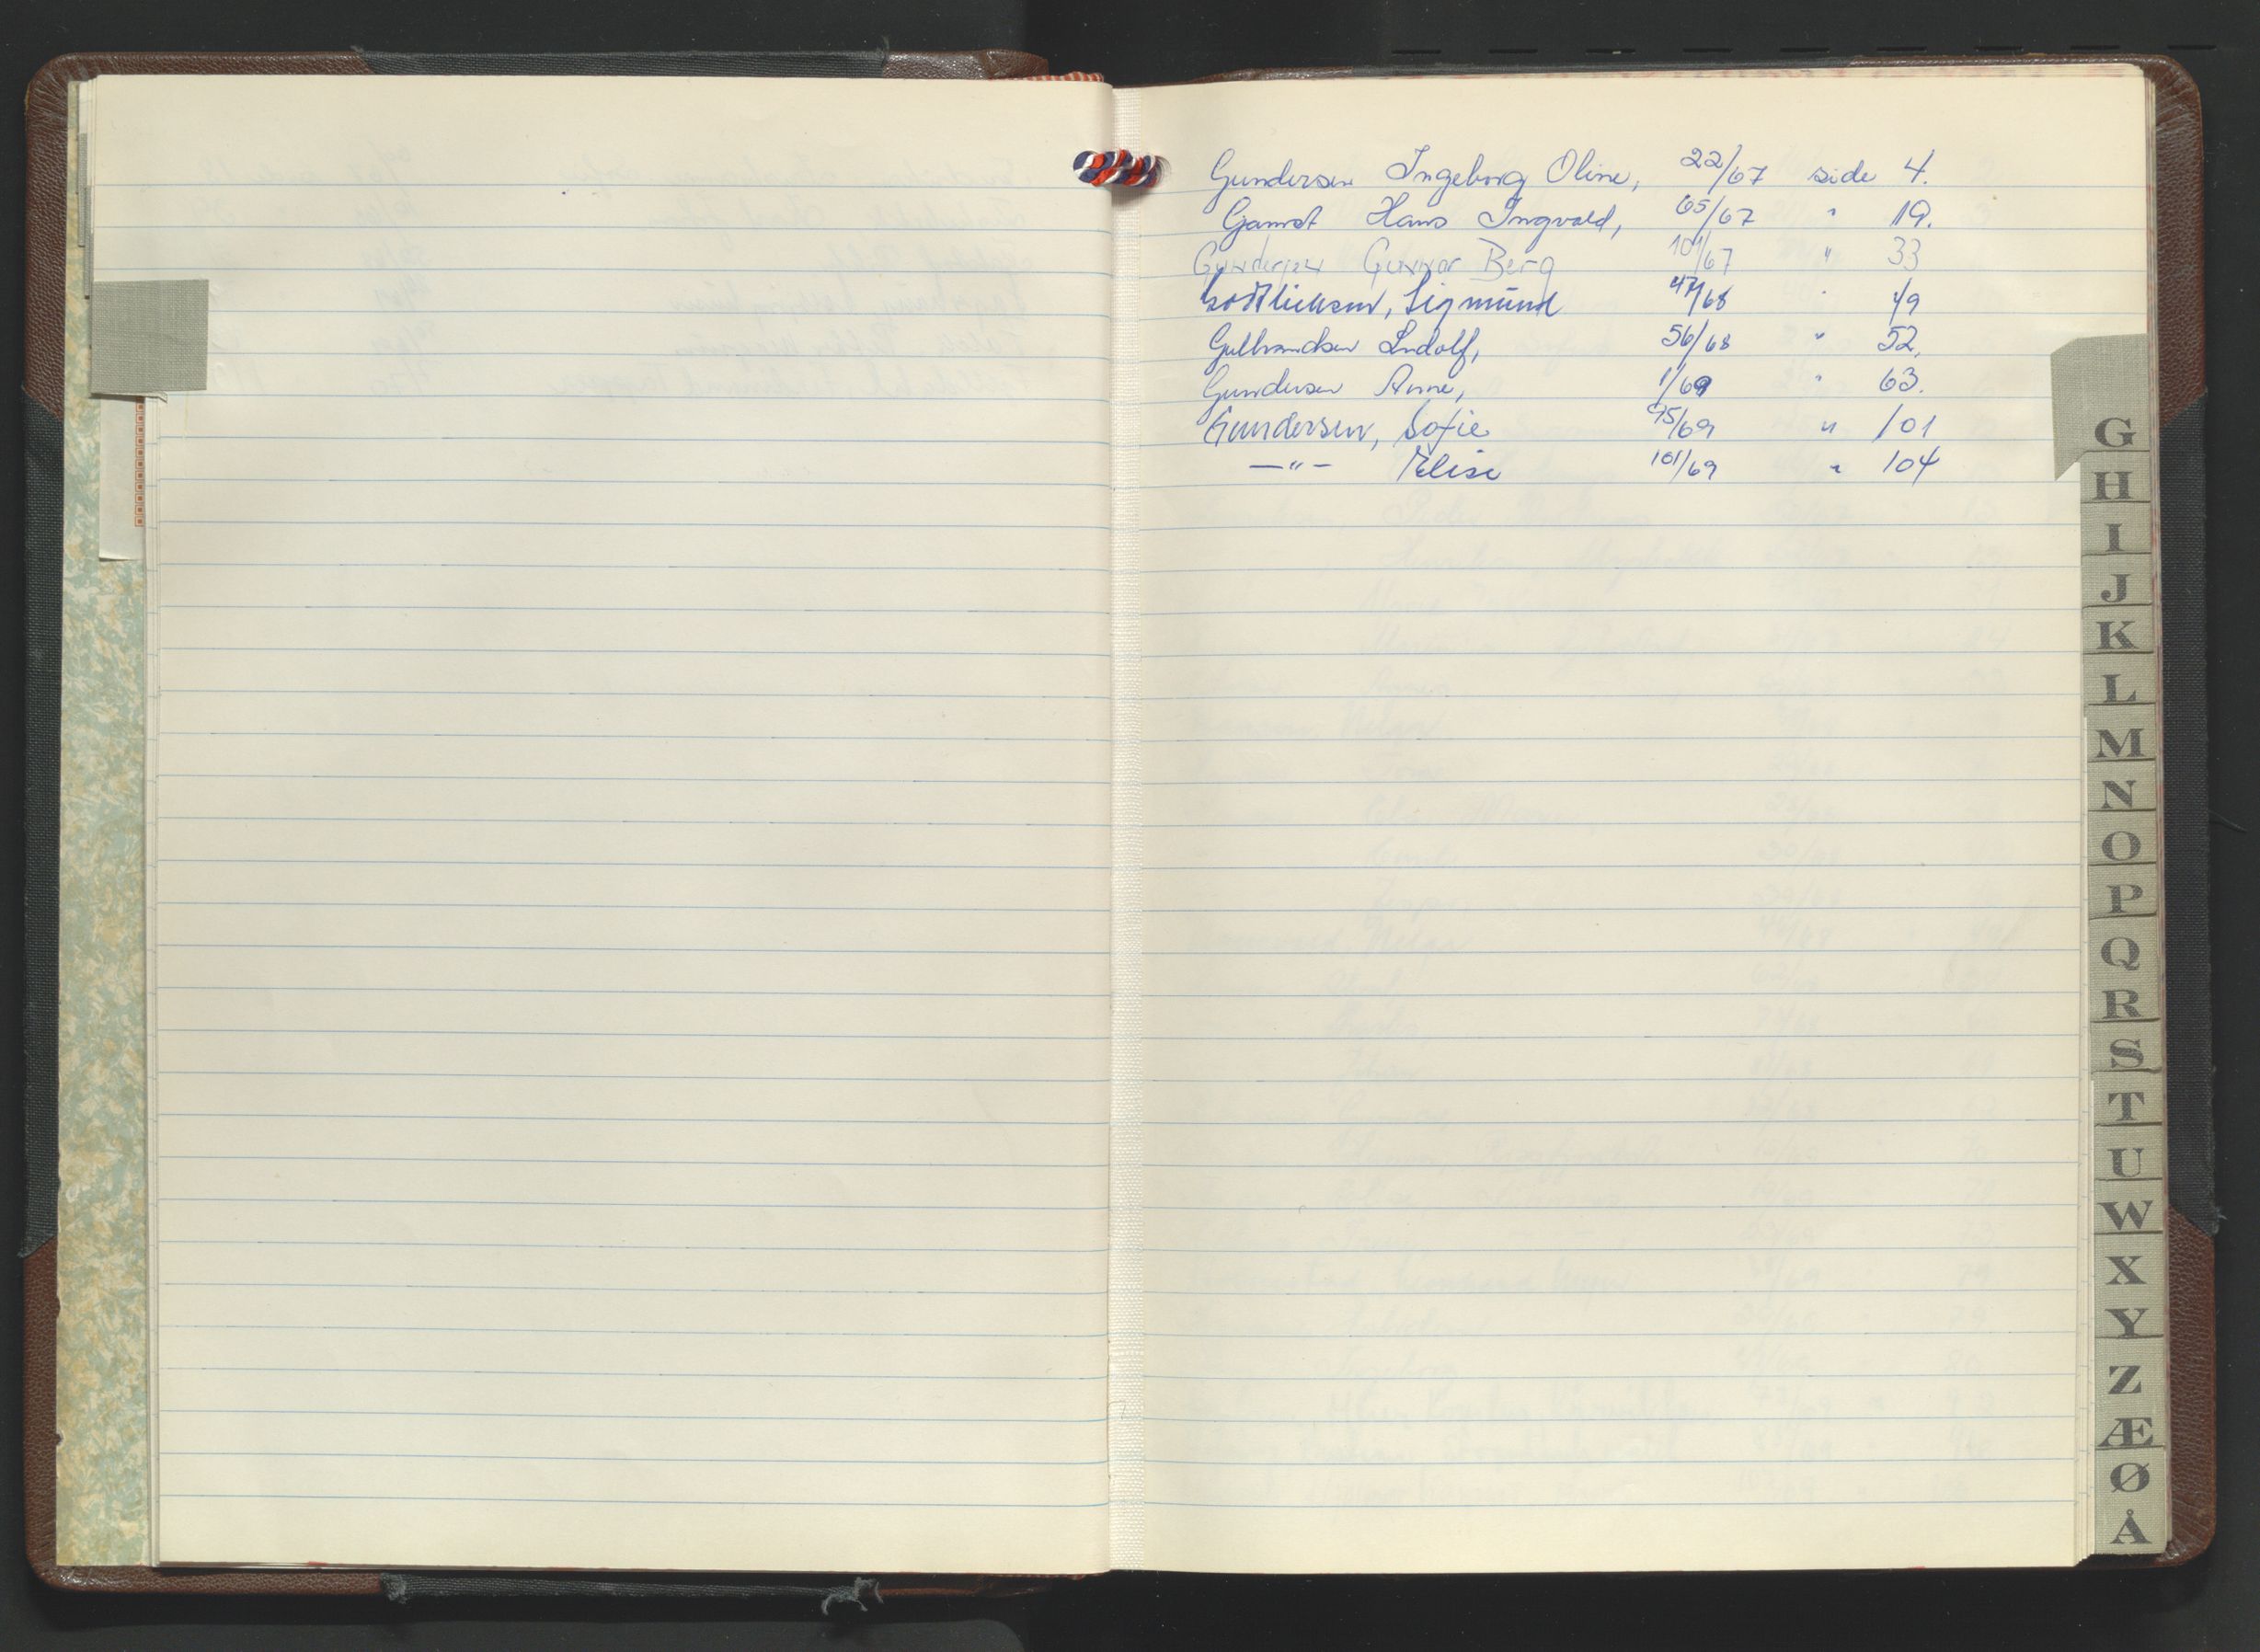 Gundersen Ingeborg Oline, 22/67 side 4.
Gamst Hans Ingvald, 65/67 " 19.
Gundersen Gunnar Berg 101/67 " 33
Gottliebsen, Sigmund 47/68 " 49
Gulbrandsen Indolf, 56/68 " 52.
Gundersen Anne, 1/69 " 63.
Gundersen, Sofie 95/69 " 101
—"— Elise 101/69 " 104
G
H
I
J
K
L
M
N
O
P
Q
R
S
T
U
W
X
Y
Z
Æ
Ø
Å